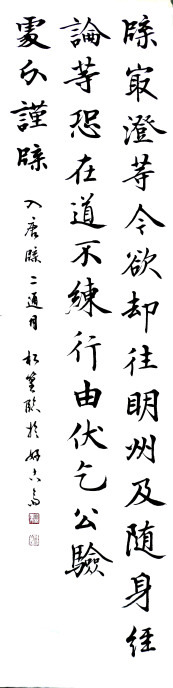 牒最澄等今欲却往明州及随身經
論等恐在道不練行由伏乞公驗
處分謹牒
入唐牒二通目